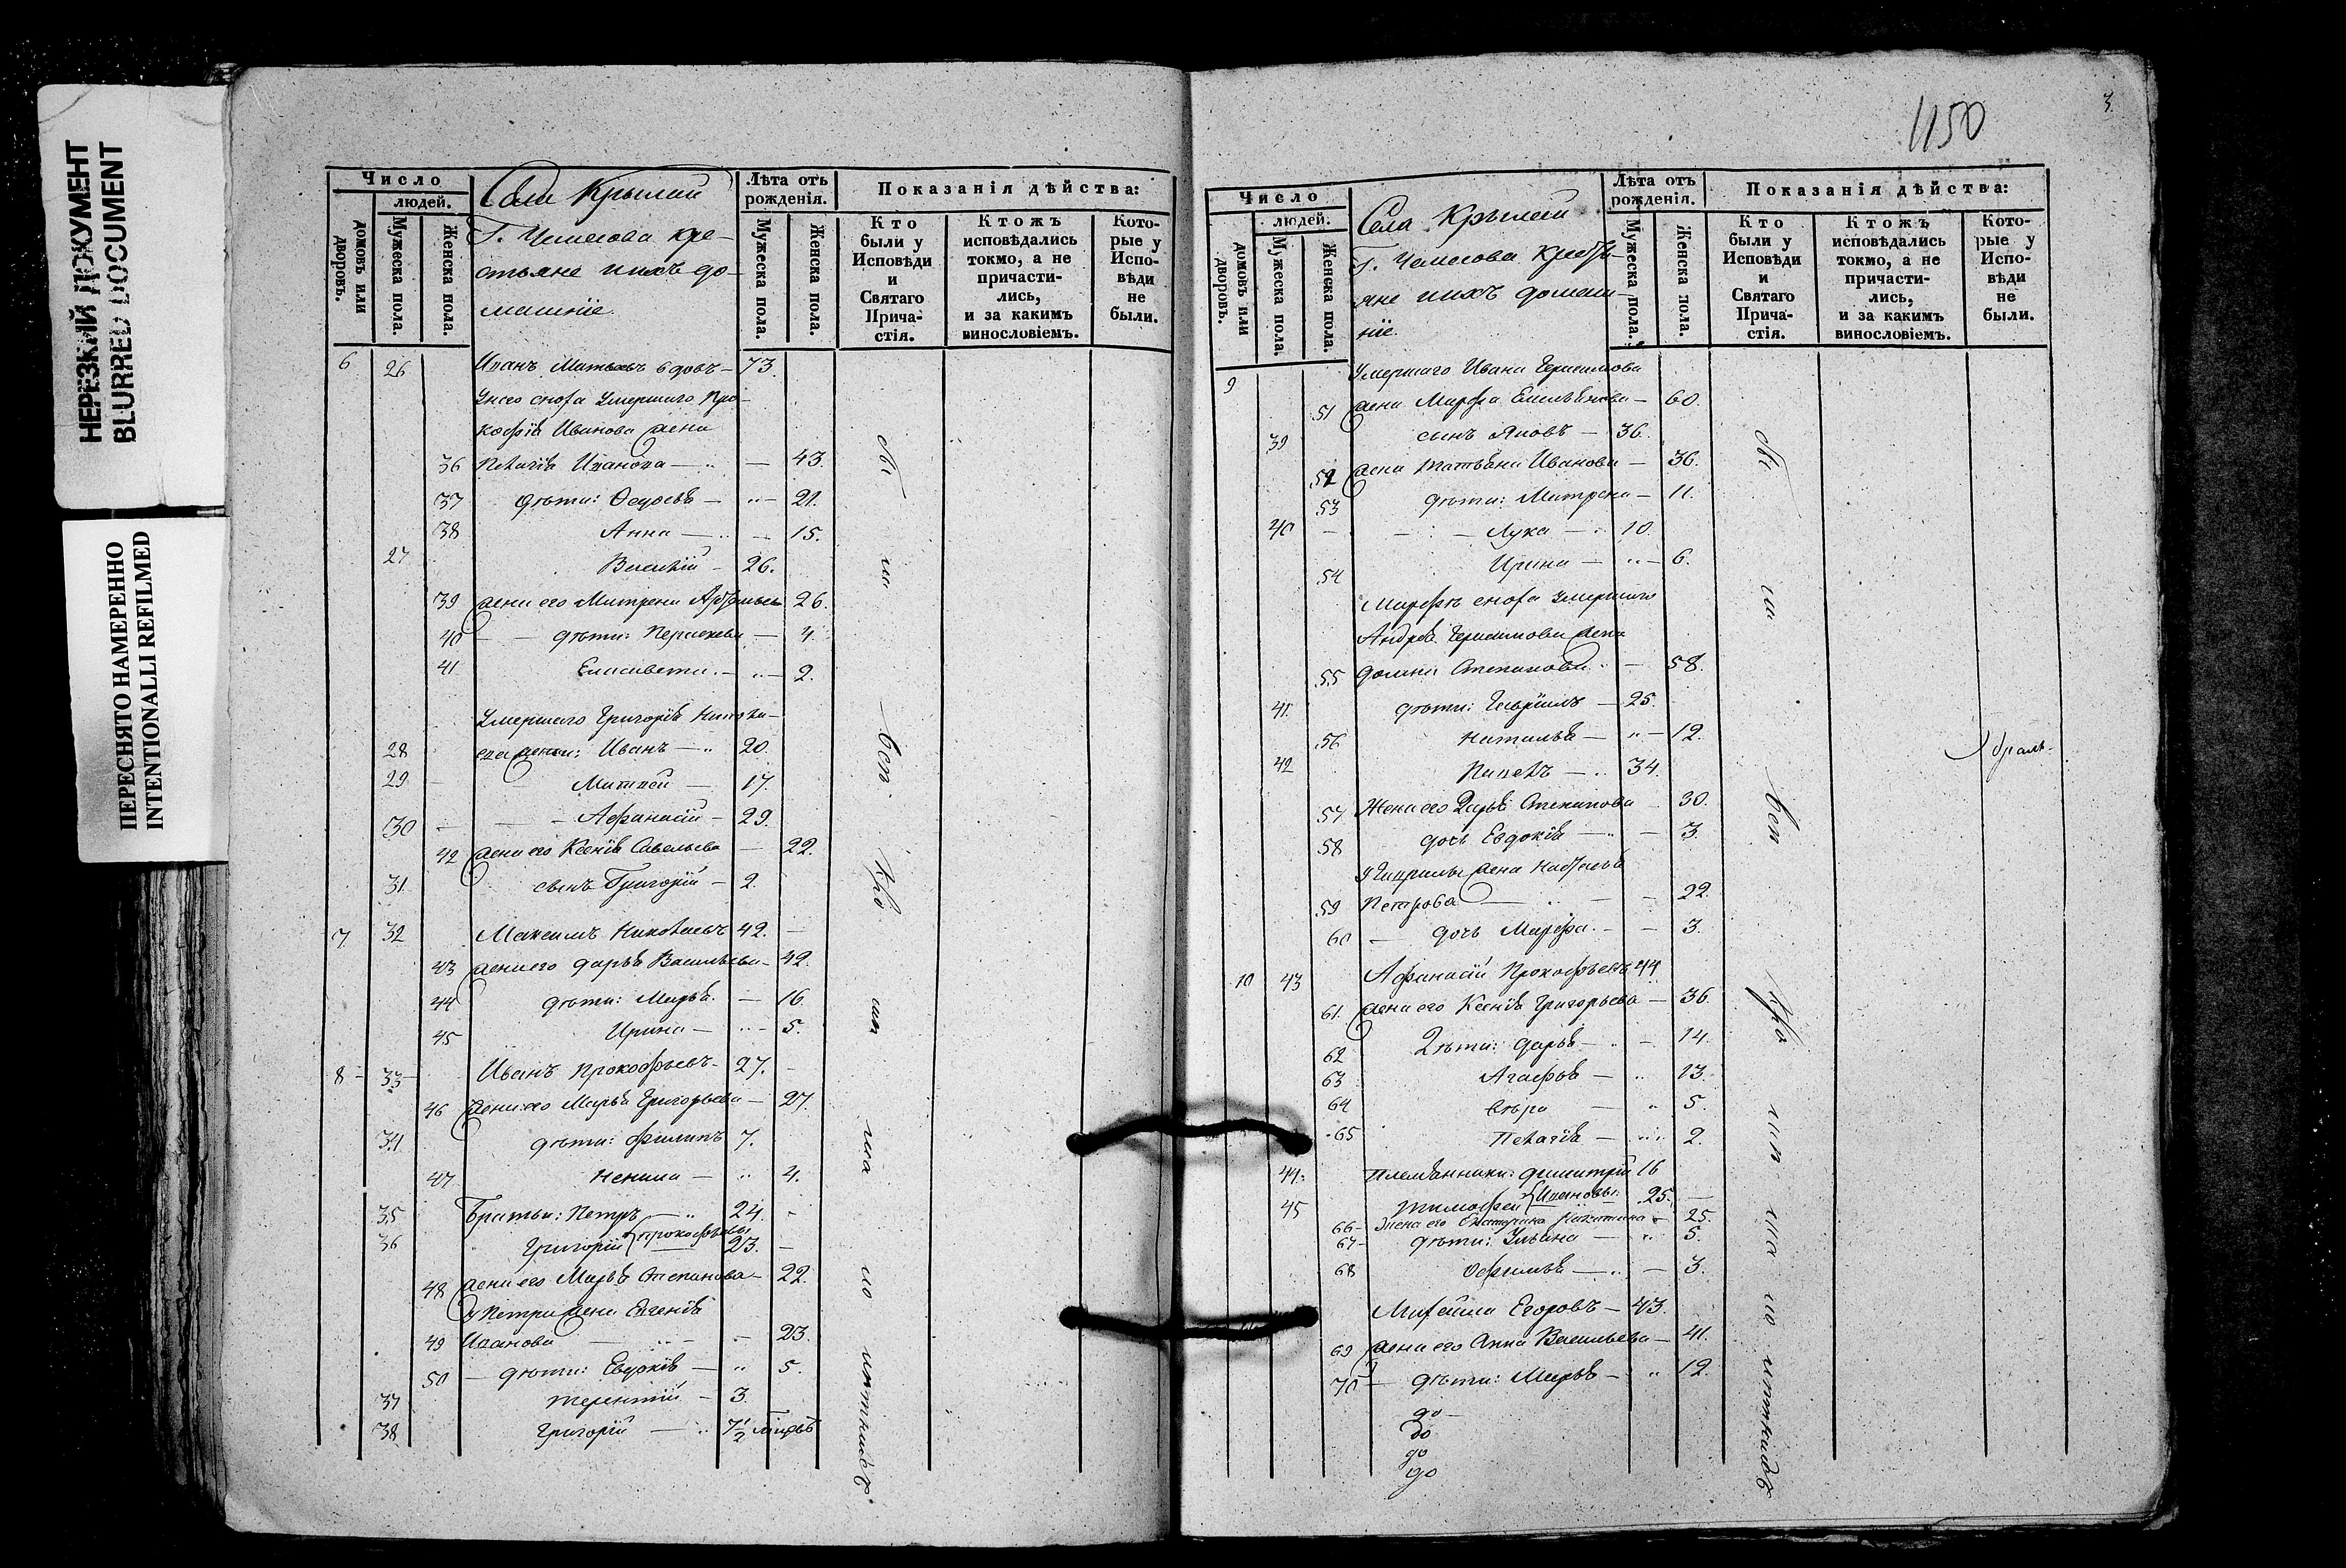 НЕРЕЗКИЙ ДОКУМЕНТ
BLURRED DOCUMENT
ПЕРЕСНЯТО НАМЕРЕННО
INTENTIONALLI REFILMED
Число
людей.
домовъ или дворовъ.
Мужеска пола.
Женска пола.
Лѣта отъ рожденія.
Мужеска пола.
Женска пола.
Показанія дѣйства:
Кто были у Исповѣди и Святаго Причастія.
Ктожъ исповѣдались токмо, а не причастились, и за какимъ винословіемъ.
Которые у Исповѣди не были.
Села Крылей
Г. Чемесова кре-
стьяне ихъ до-
машніе.
6 26 Иванъ вдовъ 73.
У него сноха умершаго Про-
кофія Иванова жена
36 Пелагія Иванова 43.
37 дѣти: Федосья 21.
38 Анна 15.
27 Василій 26.
39 жена его Матрена 26.
40 дѣти: Парасковья 4.
41 Елисавета 2.
умершаго Григорія
28 дѣти: Иванъ 20.
29 Матвей 17.
30 Афанасій 29.
42 жена его Ксенія Савельева 22.
31 сынъ Григорій 2.
7 32 Максимъ Николаевъ 42.
43 жена его Дарья Васильева 42.
44 дѣти: Марья 16.
45 Ирина 5.
8 33 Иванъ Прокофьевъ 27.
46 жена его Марья Григорьева 27.
34 дѣти: Филипъ 7.
47 Ненила 4.
35 Братья: Петръ 24.
36 Григорій Прокофьевы 23.
48 жена его Марья Степанова 22.
у Петра жена Евгенія
49 Иванова 23.
50 дѣти: Евдокія 5.
37 Терентій 3.
38 Григорій 7 1/2
1150
3.
Число
людей.
домовъ или дворовъ.
Мужеска пола.
Женска пола.
Лѣта отъ рожденія.
Мужеска пола.
Женска пола.
Показанія дѣйства:
Кто были у Исповѣди и Святаго Причастія.
Ктожъ исповѣдались токмо, а не причастились, и за какимъ винословіемъ.
Которые у Исповѣди не были.
Села Крылей
Г. Чемесова кресть-
яне ихъ домаш-
ніе.
9 умершаго Ивана Герасимова
51 жена Марфа Емельянова 60.
39 сынъ Яковъ 36.
52 жена Татьяна Иванова 36.
53 дѣти: Матрена 11.
40 Лука 10.
54 Ирина 6.
Марфѣ сноха умершаго
Андрея Герасимова жена
55 Домна Степанова 58.
41. дѣти: Гавріилъ 25.
56 Наталья 12.
42 Павелъ 34.
57 Жена его Дарья Степанова 30.
58 дочь Евдокія 3.
У Гаврилы жена Настасья
59 Петрова 22.
60 дочь Марфа 3.
10 43 Афанасій Прокофьевъ 44
61. жена его Ксенія Григорьева 36.
62 Дѣти: Дарья 14.
63 Агафья 13.
64 Вѣра 5.
65 Пелагія 2.
44. Племянники: Димитрій 16
45 Тимофей Ивановы 25.
66 жена его Екатерина Никитина 25.
67 дѣти: Ульяна 5.
68 Офимья 3.
Михаила Егоровъ 43.
69 жена его Анна Васильева 41.
70 дѣти: Марья 12.
до
до
до
до